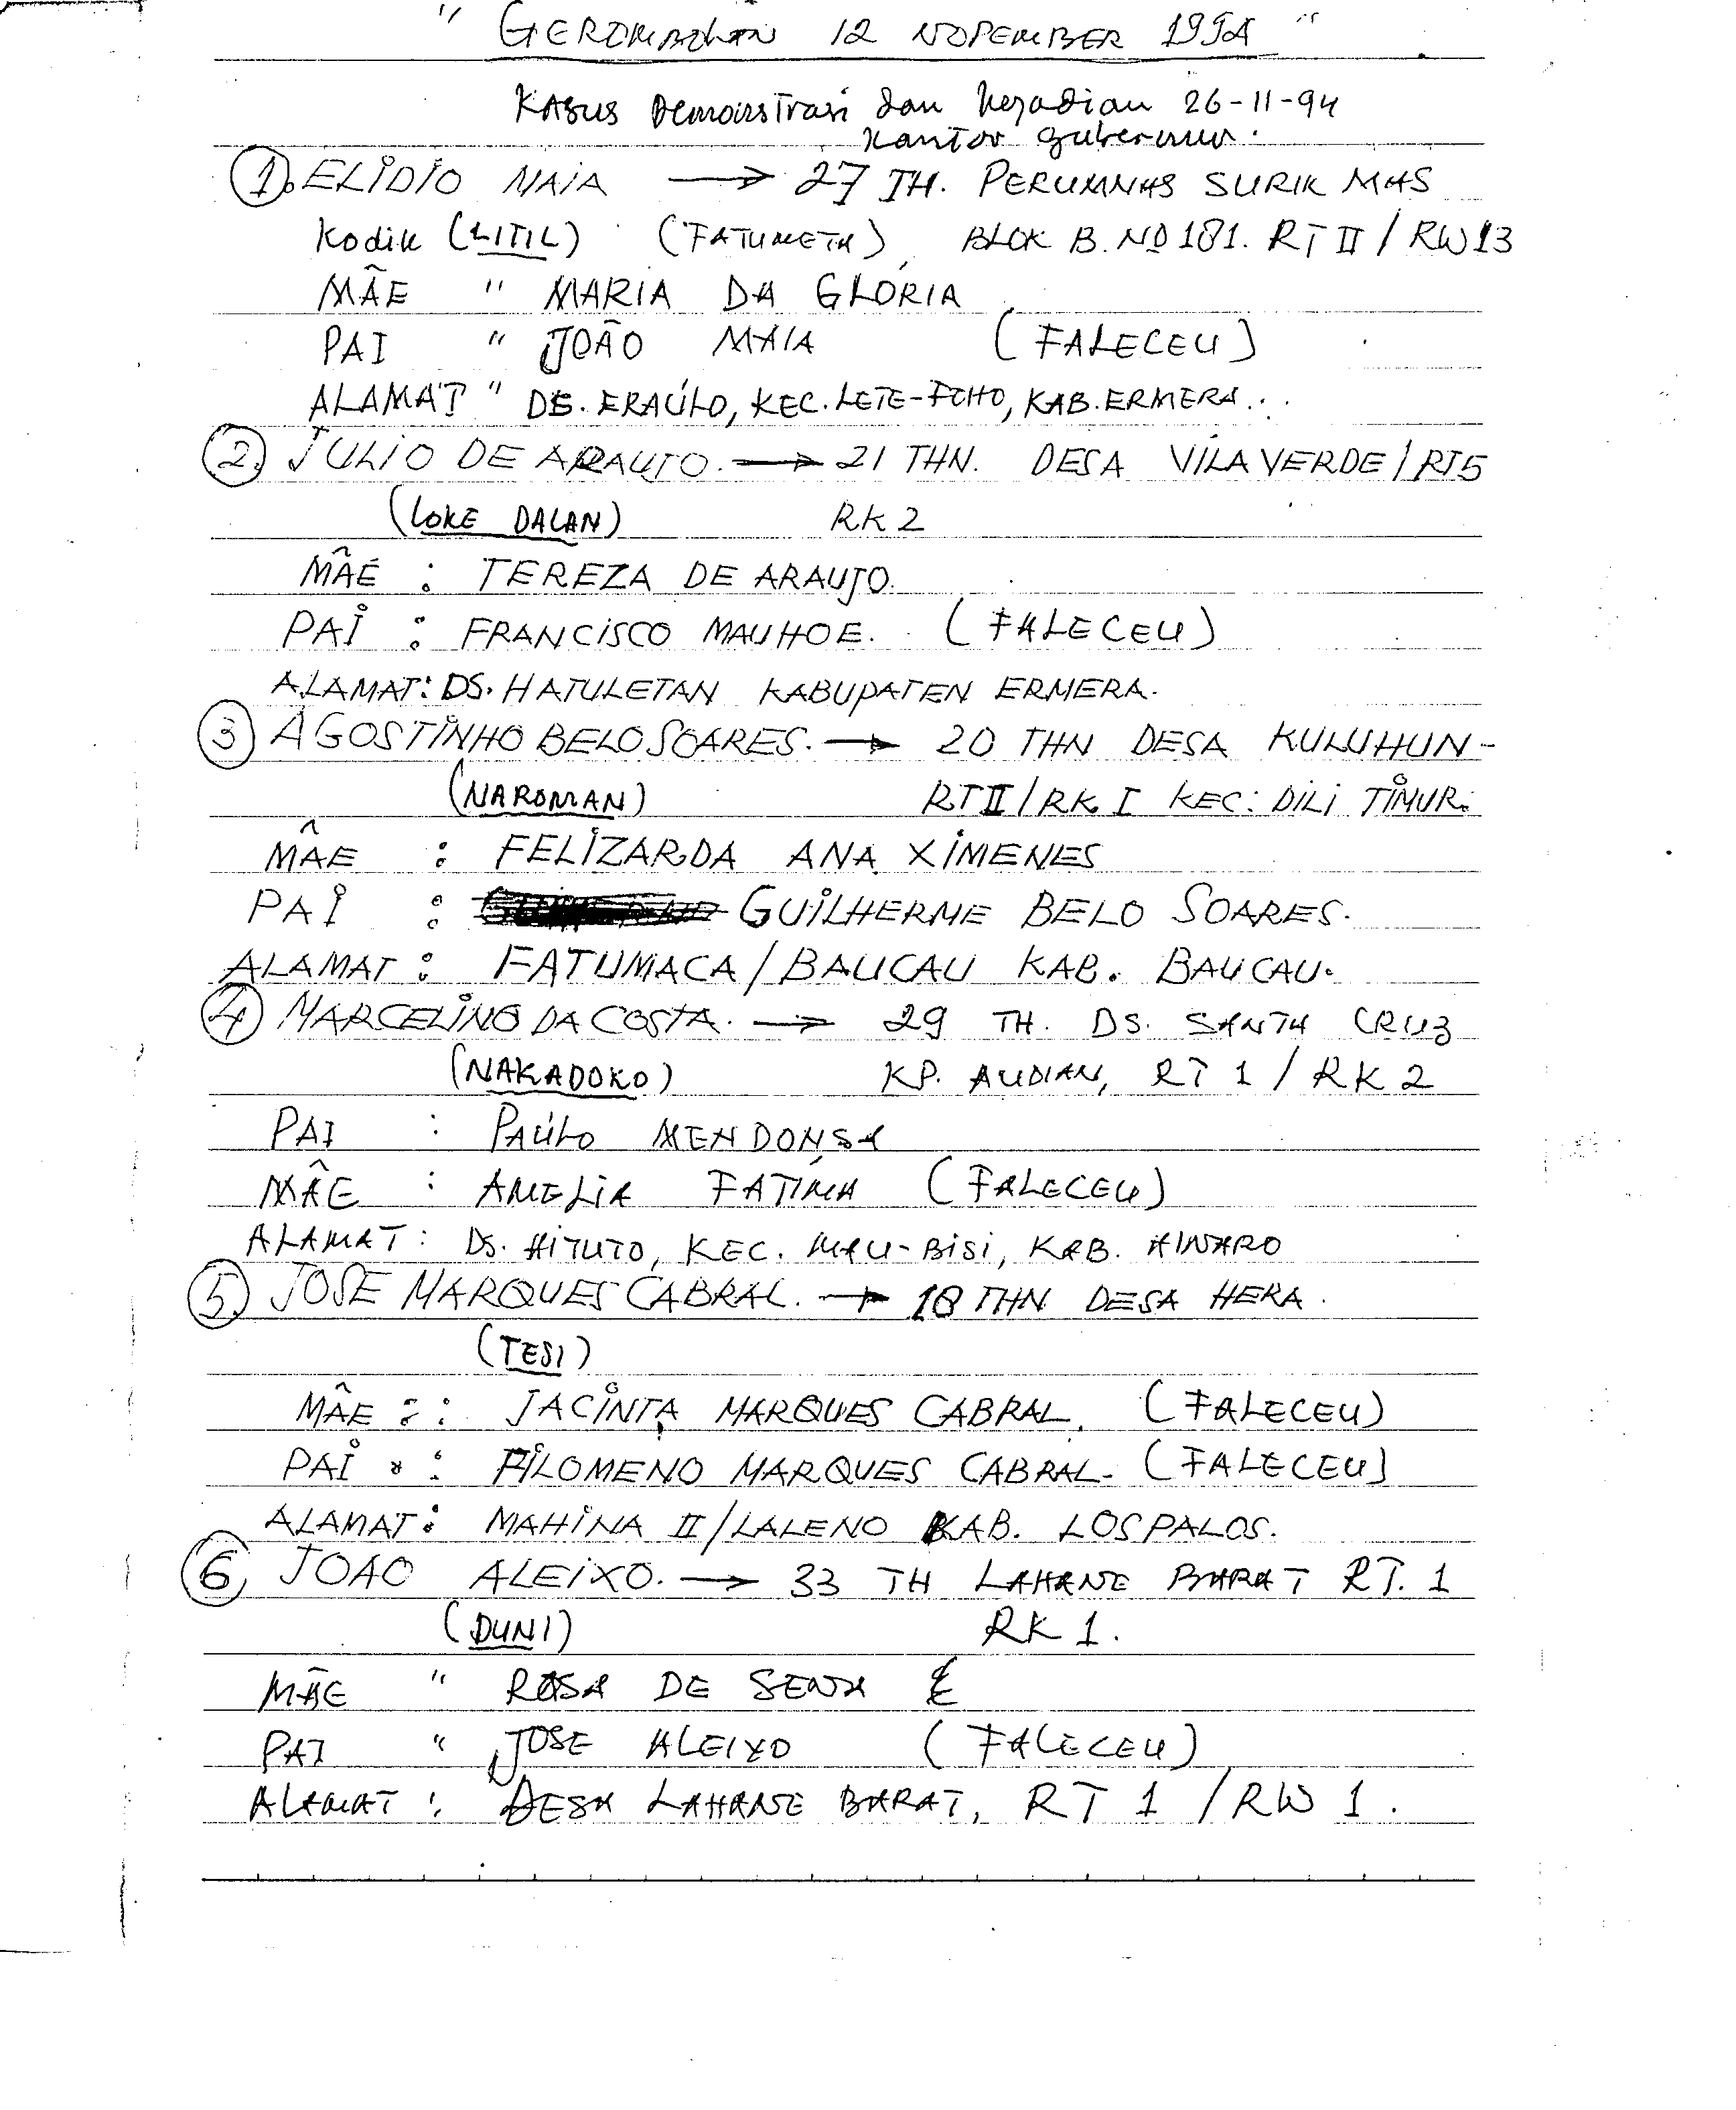 " GEROMBOLAN 12 NOPEMBER 1994 "
KASUS Demonstrasi dan kejadian 26-11-94
kantor gubernur.
1. ELIDIO MAIA → 27 TH. PERUMNAS SURIK MAS
Kodik (LITIL) (FATUMETA) BLOK B. NO 181. RT II / RW 13
MÃE " MARIA DA GLÓRIA
PAI " JOÃO MAIA (FALECEU)
ALAMAT " DS. ERAÚLO, KEC. LETE-FOHO, KAB. ERMERA...
2. JULIO DE ARAUJO. → 21 THN. DESA VILA VERDE / RT5
(LOKE DALAN) RK 2
MÂE : TEREZA DE ARAUJO.
PAI : FRANCISCO MAUHOE. (FALECEU)
ALAMAT: DS. HATULETAN KABUPATEN ERMERA.
3 AGOSTINHO BELO SOARES. → 20 THN DESA KULUHUN-
(NAROMAN) RT II / RK I KEC: DILI TIMUR.
MÂE : FELIZARDA ANA XIMENES
PAI : GUILHERME BELO SOARES.
ALAMAT : FATUMACA / BAUCAU KAB. BAUCAU.
4 MARCELINO DA COSTA. → 29 TH. DS. SANTA CRUZ
(NAKADOKO) KP. AUDIAN, RT 1 / RK 2
PAI : PAÚLO MENDONSA
MÂE : AMELIA FATÍMA (FALECEU)
ALAMAT : DS. AITUTO, KEC. MAU-BISI, KAB. AINARO
5. JOSE MARQUES CABRAL. → 18 THN DESA HERA.
(TESI)
MÂE : : JACINTA MARQUES CABRAL. (FALECEU)
PAI : FILOMENO MARQUES CABRAL- (FALECEU)
ALAMAT : MAHINA II / LALENO KAB. LOSPALOS.
6, JOAO ALEIXO. → 33 TH LAHANE BARAT RT. 1
(DUNI) RK 1.
MÃE " ROSA DE SENA
PAI " JOSE ALEIXO (FALECEU)
ALAMAT : DESA LAHANE BARAT, RT 1 / RW 1.